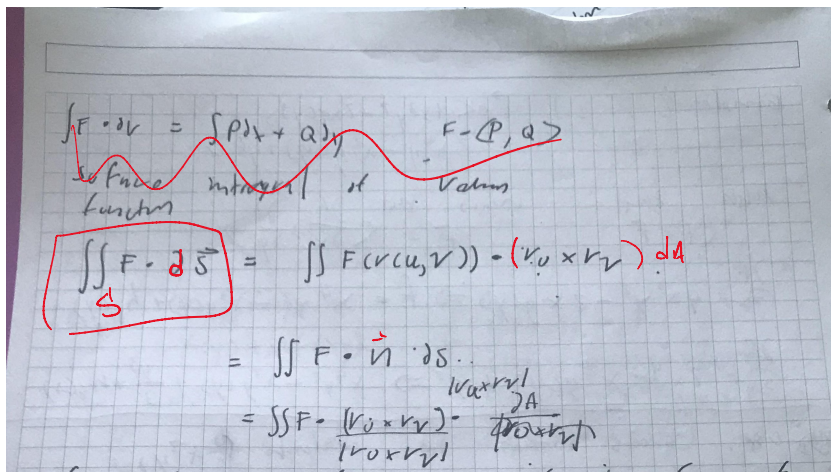 ∫F • dr = ∫Pdx + Qdy F = ⟨P, Q⟩
surface integral of
function
∬_S F • d S⃗ = ∬ F(r(u,v)) • (r_u × r_v) dA
= ∬ F • n⃗ dS
= ∬ F • (r_u × r_v)/|r_u × r_v| • |r_u × r_v| dA